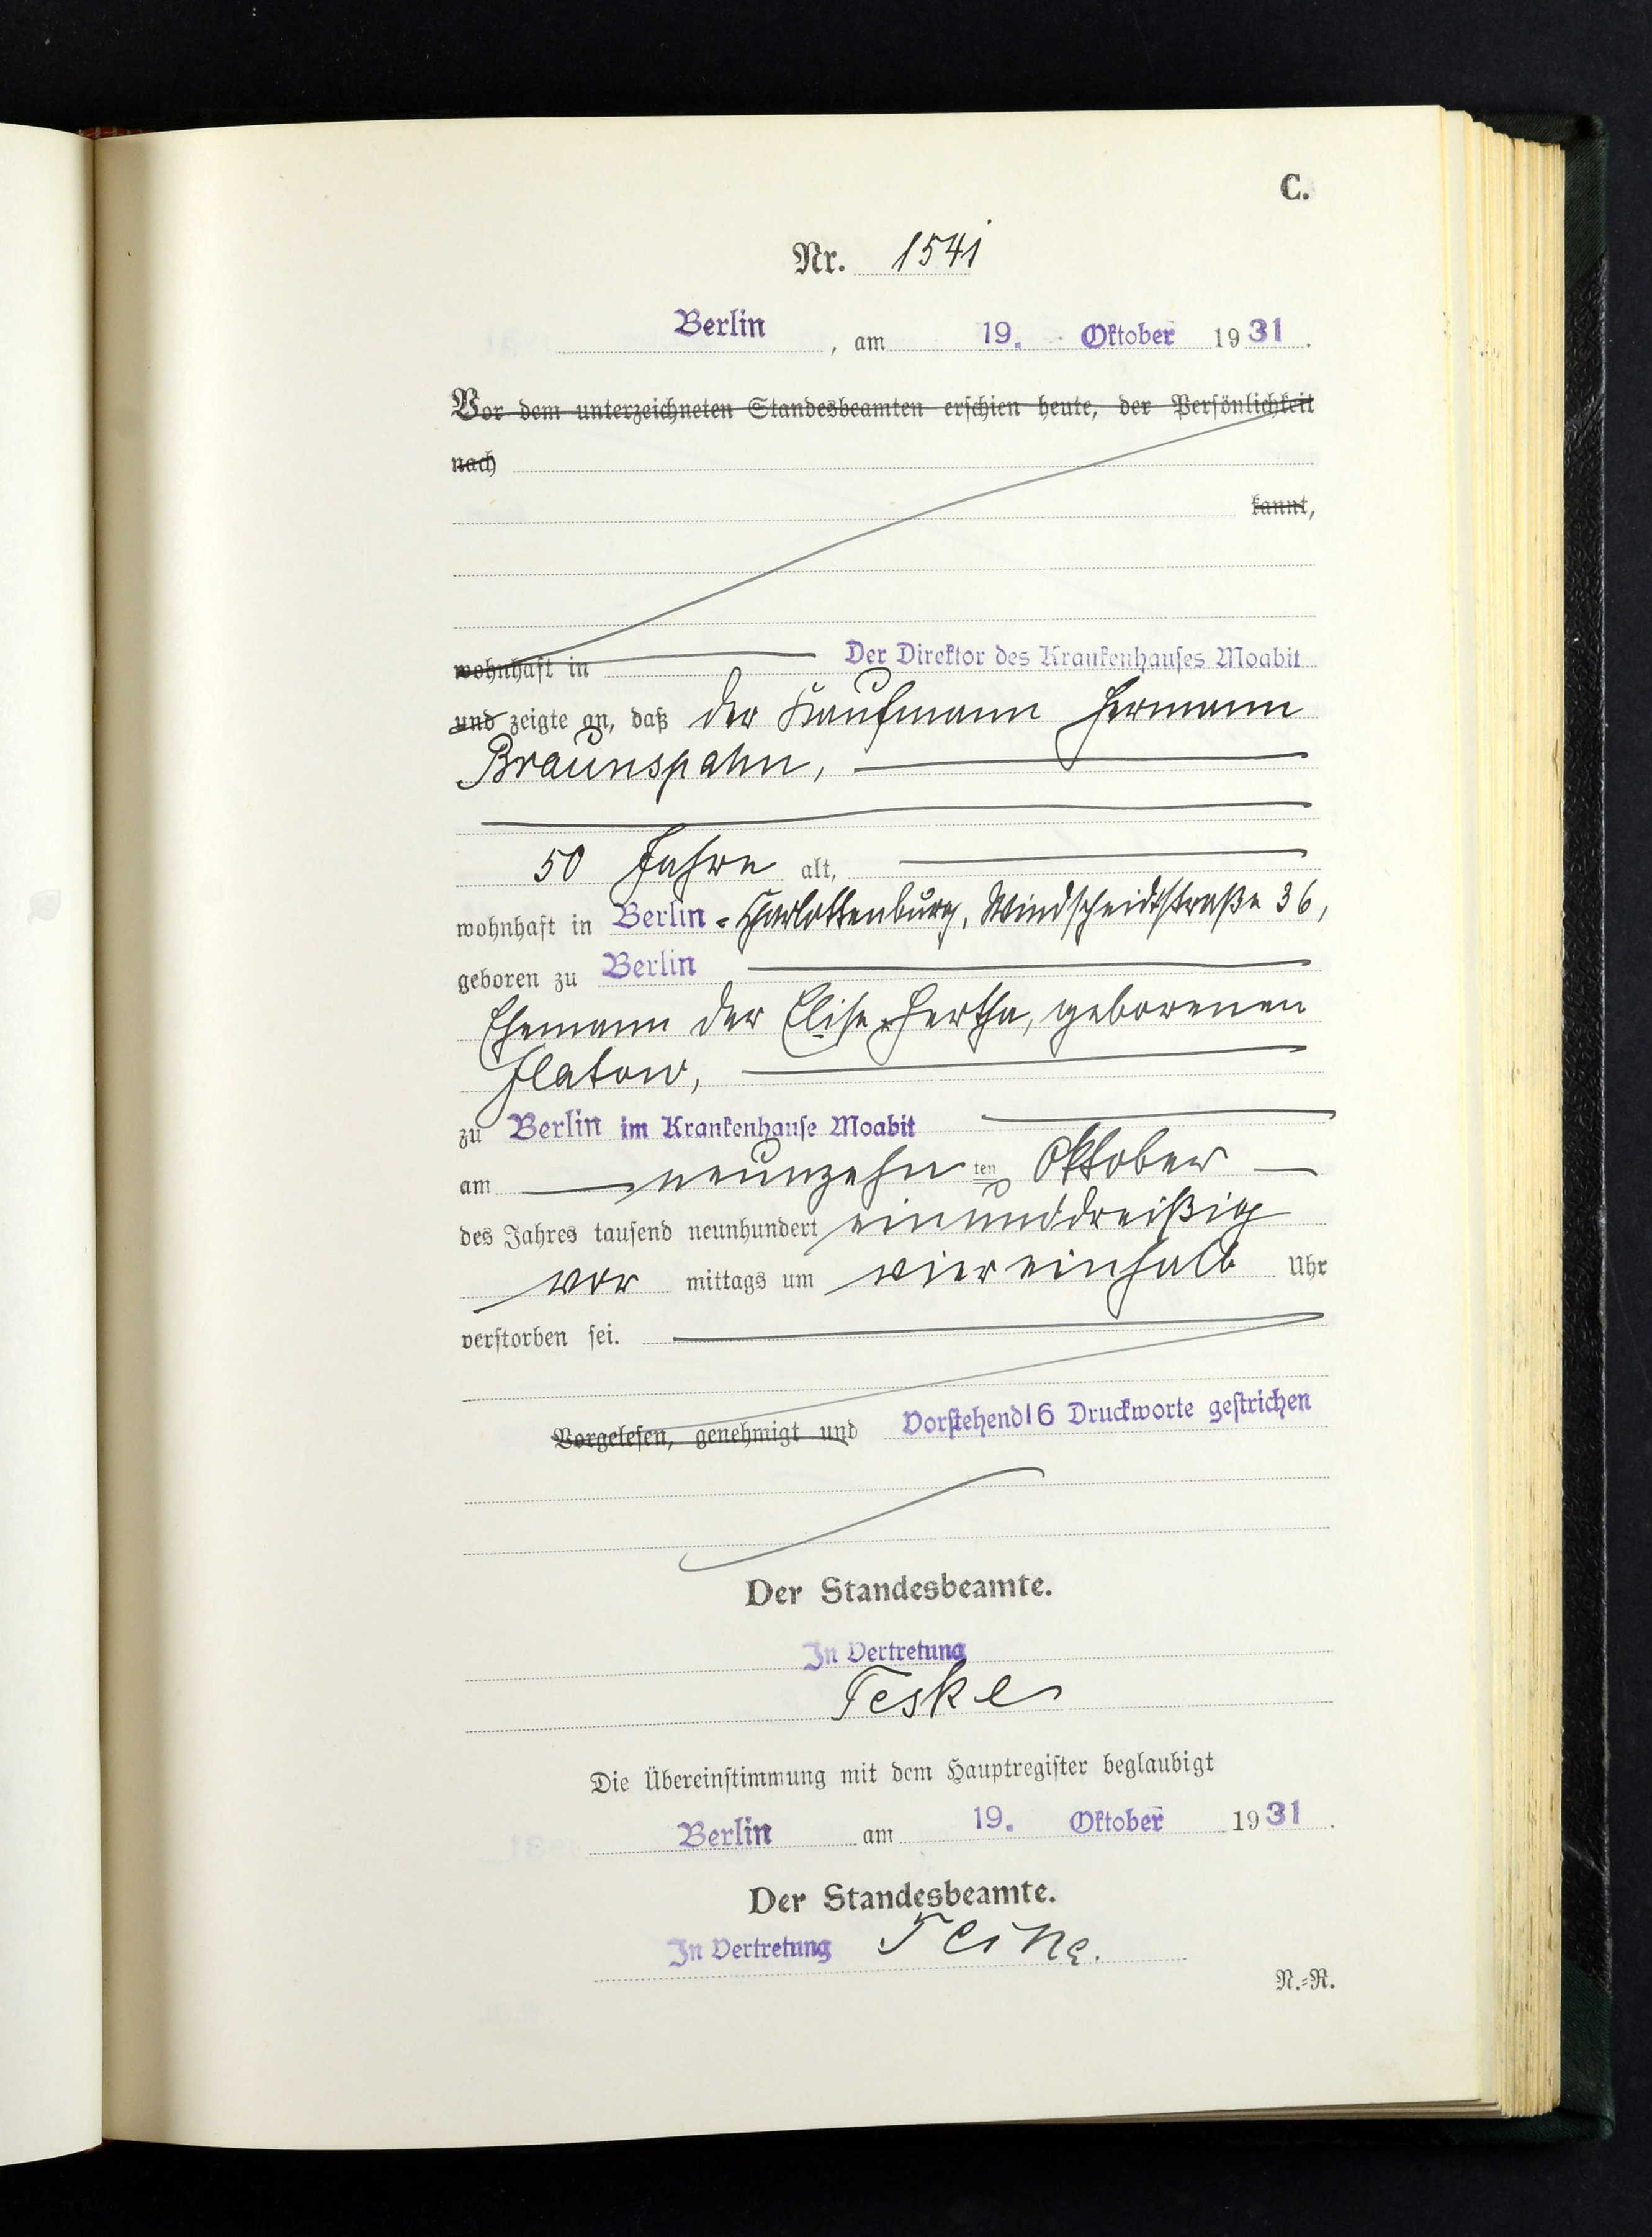 C.
Nr. 1541
Berlin, am 19. Oktober 1931.
Vor dem unterzeichneten Standesbeamten erschien heute, der Persönlichkeit
nach
kannt,
wohnhaft in Der Direktor des Krankenhauses Moabit
und zeigte an, daß der Kaufmann Hermann
Braunspahn,
50 Jahre alt,
wohnhaft in Berlin-Charlottenburg, Windscheidtstraße 36,
geboren zu Berlin
Ehemann der Elise Hertha, geborenen
Flatow,
zu Berlin im Krankenhause Moabit
am neunzehnten Oktober
des Jahres tausend neunhundert einunddreißig
vormittags um viereinhalb Uhr
verstorben sei.
Vorgelesen, genehmigt und Vorstehend 16 Druckworte gestrichen
Der Standesbeamte.
In Vertretung
Teske
Die Übereinstimmung mit dem Hauptregister beglaubigt
Berlin am 19. Oktober 1931.
Der Standesbeamte.
In Vertretung
N.=R.